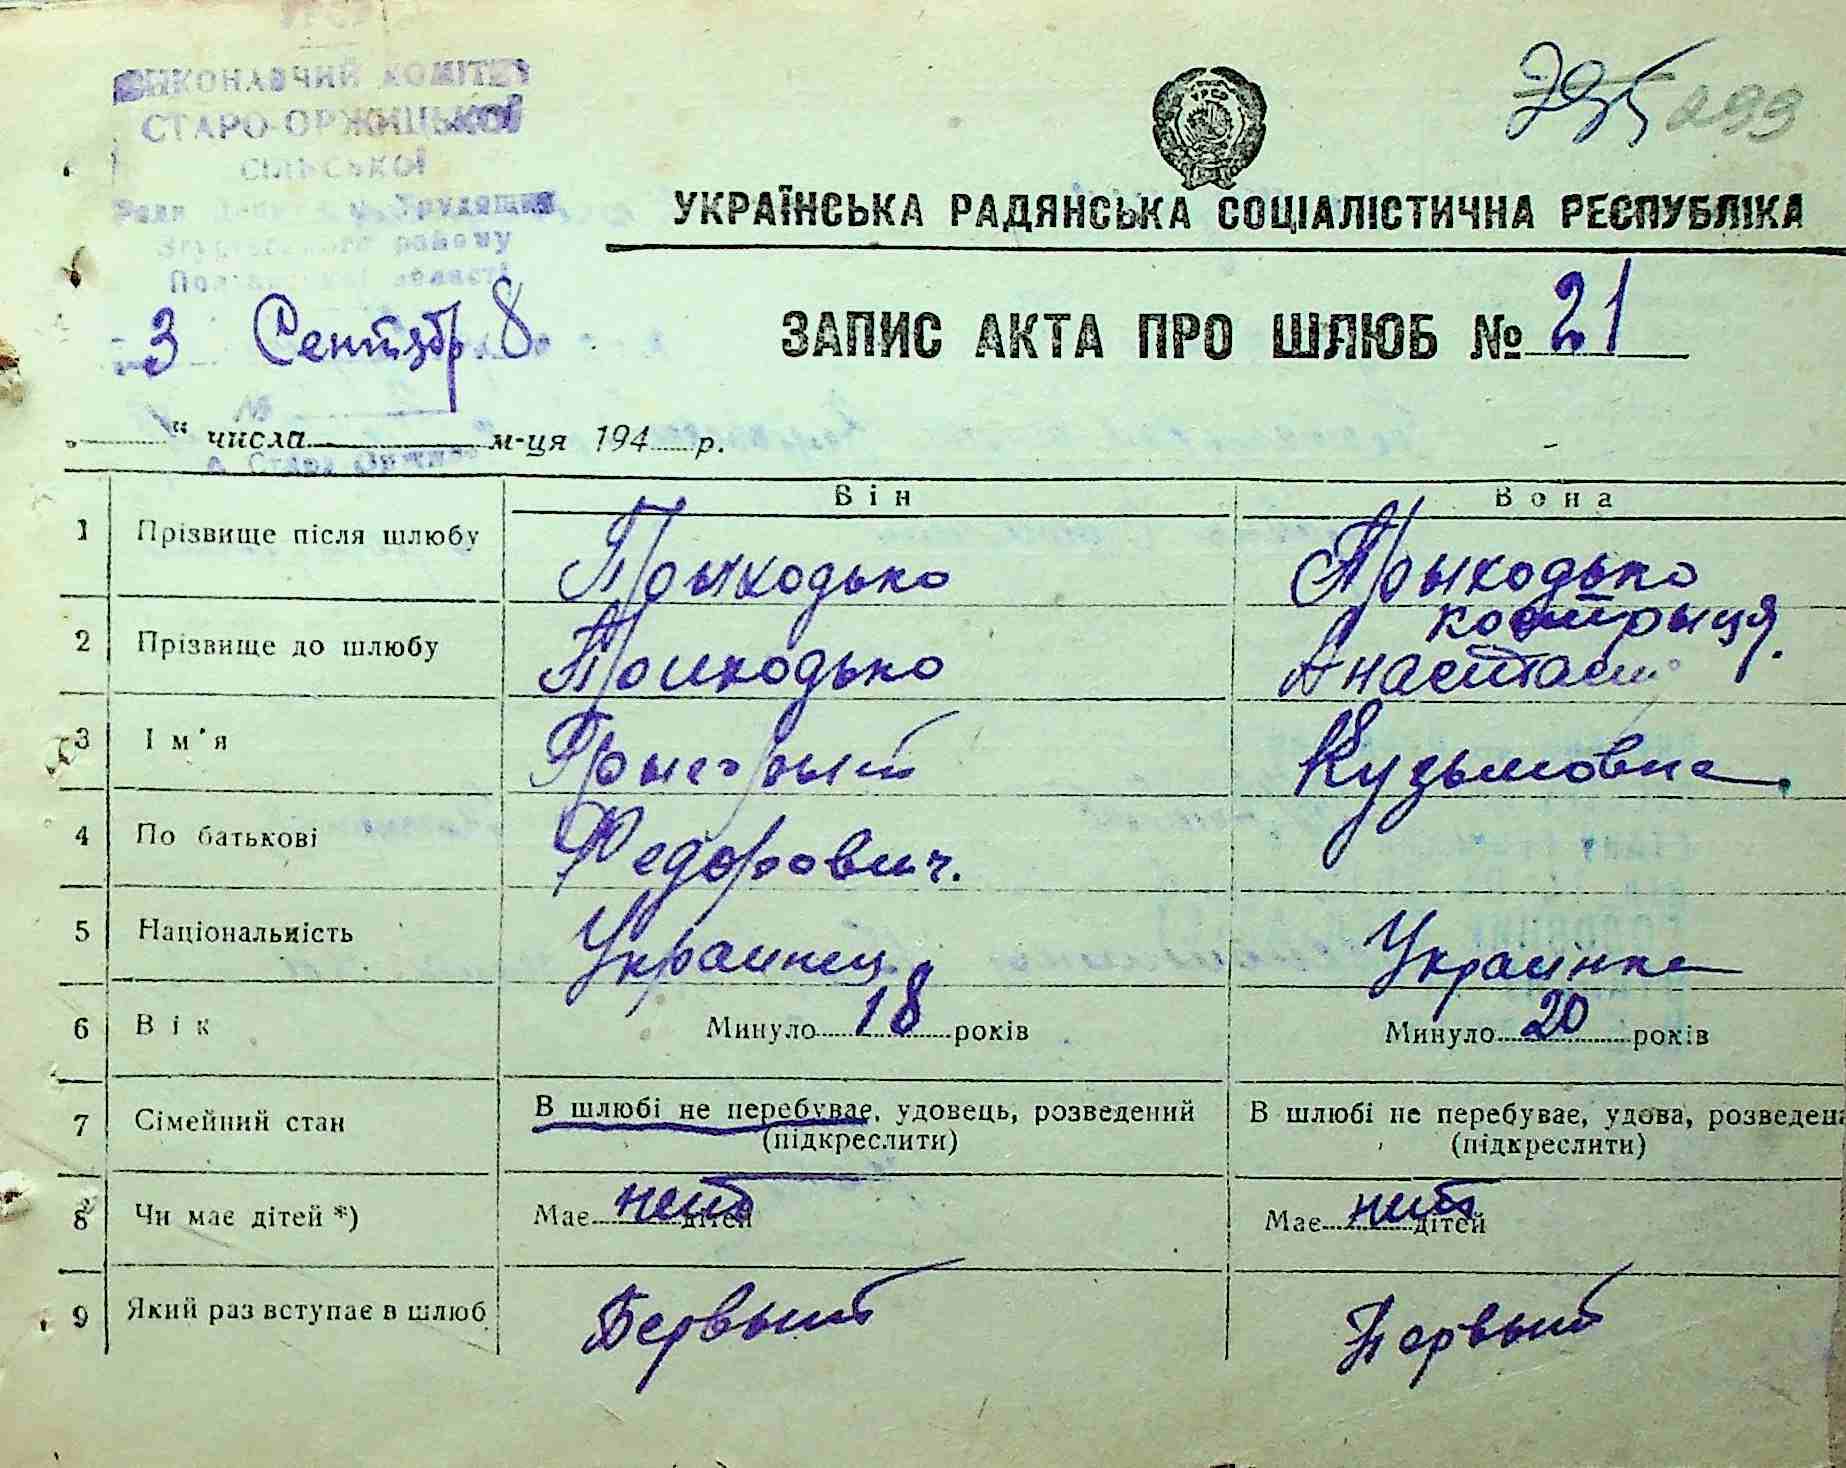 УРСР
ВИКОНАВЧИЙ КОМІТЕТ
СТАРО-ОРЖИЦЬКОЇ
СІЛЬСЬКОЇ
Ради Трудящих
Згурівського району
Полтавської області
295 299
УРСР
УКРАЇНСЬКА РАДЯНСЬКА СОЦІАЛІСТИЧНА РЕСПУБЛІКА
3 Сентябр. 8
ЗАПИС АКТА ПРО ШЛЮБ № 21
№
„ “ числа м-ця 194 р.
с. Стара Оржиця
Він Вона
1 Прізвище після шлюбу Прыходько Прыходько
2 Прізвище до шлюбу Приходько Костырыця.
Анастаси
3 Ім'я Грыгорый Кузьмовна
4 По батькові Федорович.
5 Національність Украинец Украінка
6 Вік Минуло 18 років Минуло 20 років
7 Сімейний стан В шлюбі не перебуває, удовець, розведений В шлюбі не перебуває, удова, розведена
(підкреслити) (підкреслити)
8 Чи має дітей *) Має нет дітей Має нет дітей
9 Який раз вступає в шлюб Первый Первый